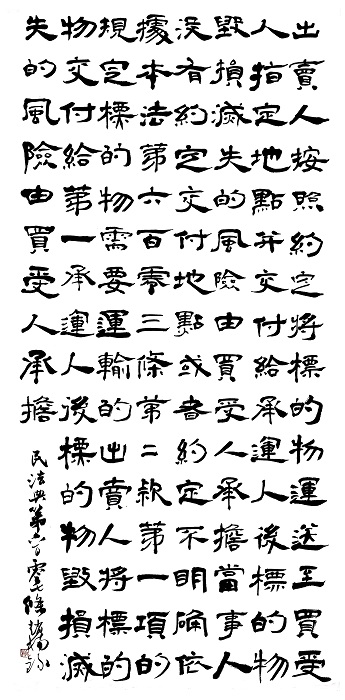 出賣人按照約定將標的物運送至買受
人指定地點并交付給承運人後標的物
毀損滅失的風險由買受人承擔當事人
沒有約定交付地點或者約定不明確依
據本法第六百零三條第二款第一項的
規定標的物需要運輸的出賣人將標的
物交付給第一承運人後標的物毀損滅
失的風險由買受人承擔
民法典第六百零七徐